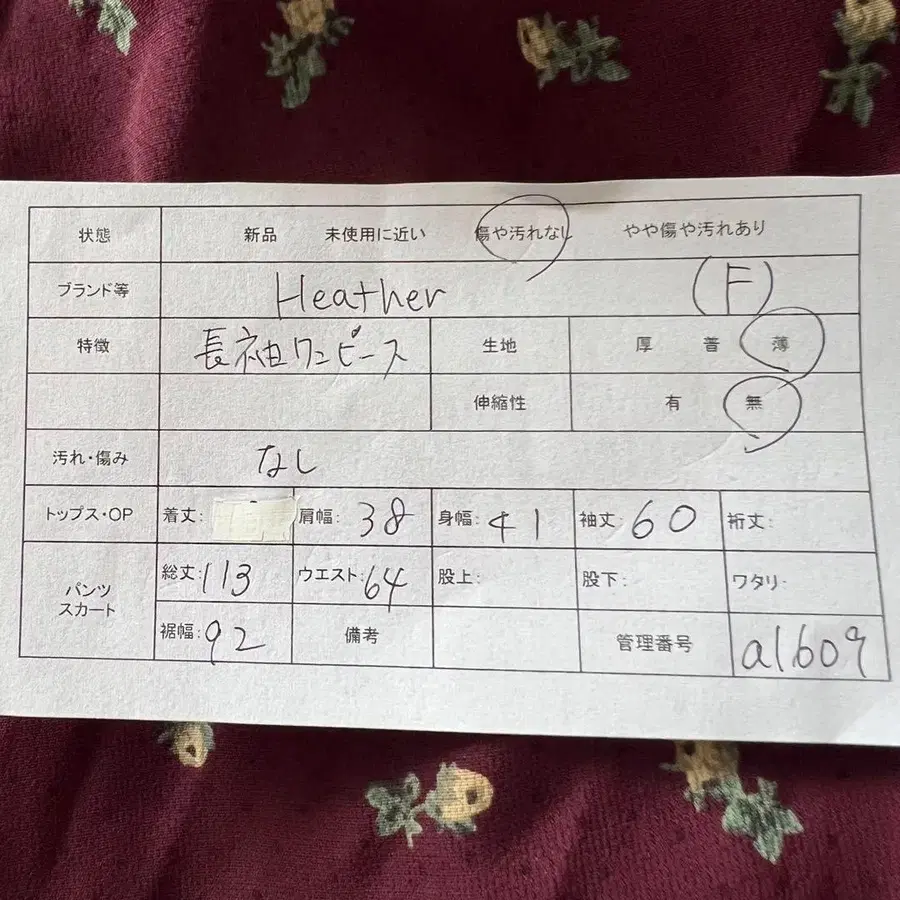 状態 新品 未使用に近い 傷や汚れなし やや傷や汚れあり
ブランド等 Heather (F)
特徴 長袖ワンピース 生地 厚 普 薄
伸縮性 有 無
汚れ・傷み なし
トップス・OP 着丈: 肩幅: 38 身幅: 41 袖丈: 60 裄丈:
パンツ スカート 総丈: 113 ウエスト: 64 股上: 股下: ワタリ:
裾幅: 92 備考 管理番号 a1609